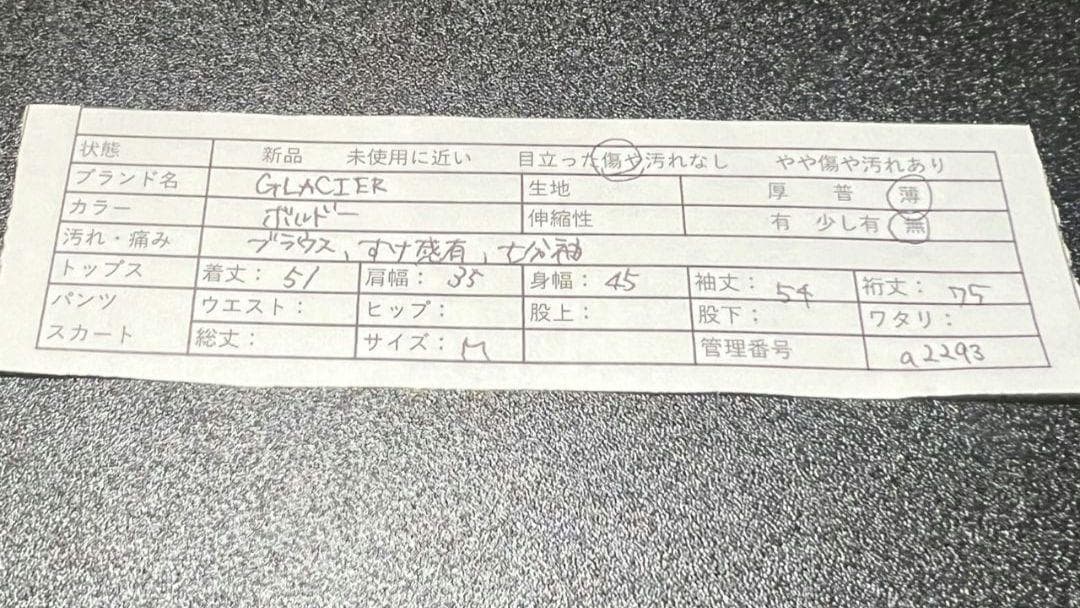 状態 新品 未使用に近い 目立った傷や汚れなし やや傷や汚れあり
ブランド名 GLACIER 生地 厚 普 薄
カラー ボルドー 伸縮性 有 少し有 無
汚れ・痛み ブラウス、すけ感有、七分袖
トップス 着丈： 51 肩幅： 35 身幅： 45 袖丈： 54 裄丈： 75
パンツ ウエスト： ヒップ： 股上： 股下； ワタリ：
スカート 総丈： サイズ： M 管理番号 a2293